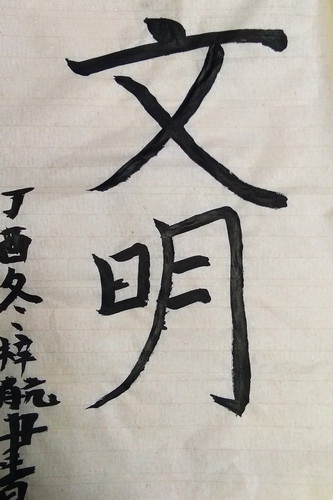 文明
丁酉冬梓航书